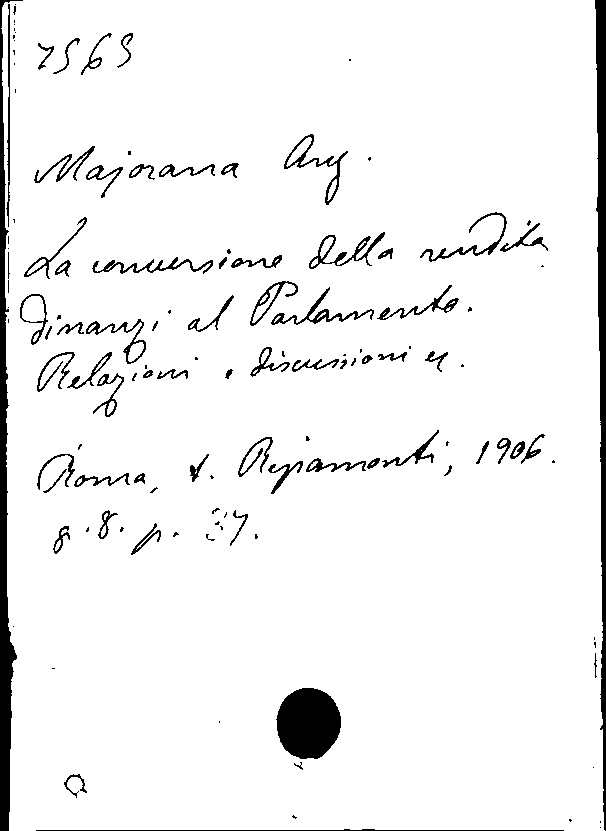 7563
Majorana Ang.
La conversione della rendita
dinanzi al Parlamento.
Relazioni e discussioni ec.
Roma, t. Ripamonti, 1906.
g. 8. p. 37.